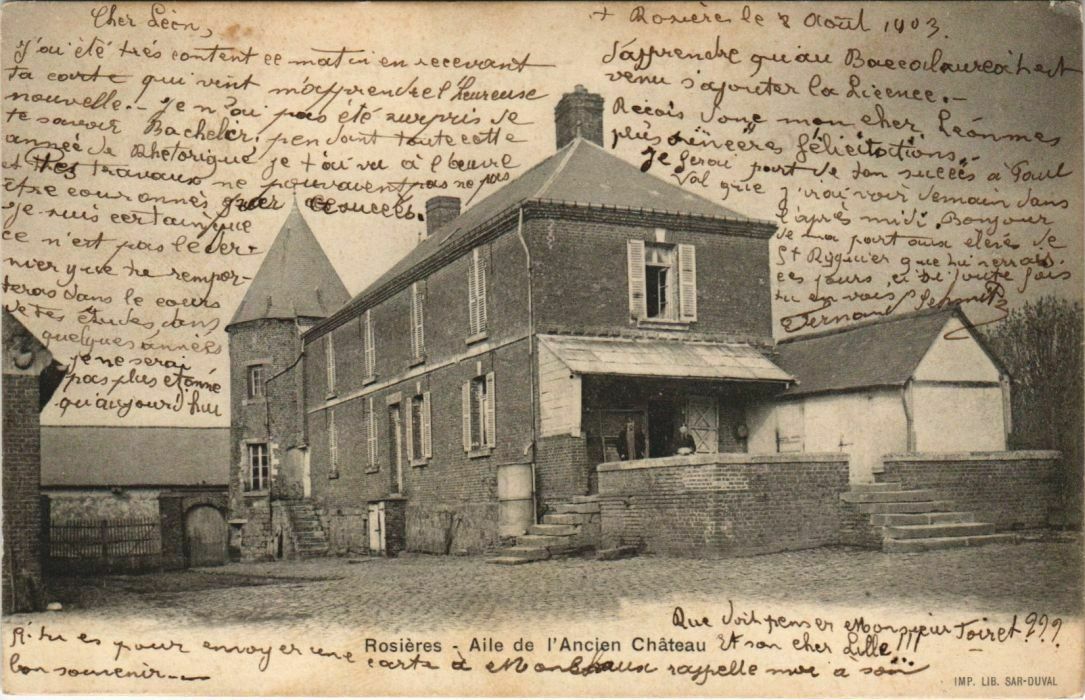 Cher Léon,
J'ai été très content ce matin en recevant
ta carte qui vint m'apprendre l'heureuse
nouvelle. - Je n'ai pas été surpris de
te savoir Bachelier, pendant toute cette
année de Rhétorique je t'ai vu à l'œuvre
et tes travaux ne pouvaient pas ne pas
être couronnés de succès.
Je suis certain que
ce n'est pas le der-
nier que ne rempor-
teras dans le cours
de tes études, dans
quelques années
je ne serai
pas plus étonné
qu'aujourd'hui
+ Rosières le 8 Août 1903.
d'apprendre qu'au Baccalauréat est
venu s'ajouter la Licence. -
Reçois donc mon cher Léon mes
plus sincères félicitations.
Je ferai part de ton succès à Paul
Val que j'irai voir demain dans
l'après midi. Bonjour
de ma part aux élèves de
St Riquier que tu verrais
ces jours ci si toute fois
tu en vois. Schmitz
Fernand
Que doit penser Monsieur Toiret ???
Et son cher Lille !!!
Si tu es pour envoyer une carte à rappelle moi à son
bon souvenir. -
Rosières - Aile de l'Ancien Château
IMP. LIB. SAR-DUVAL